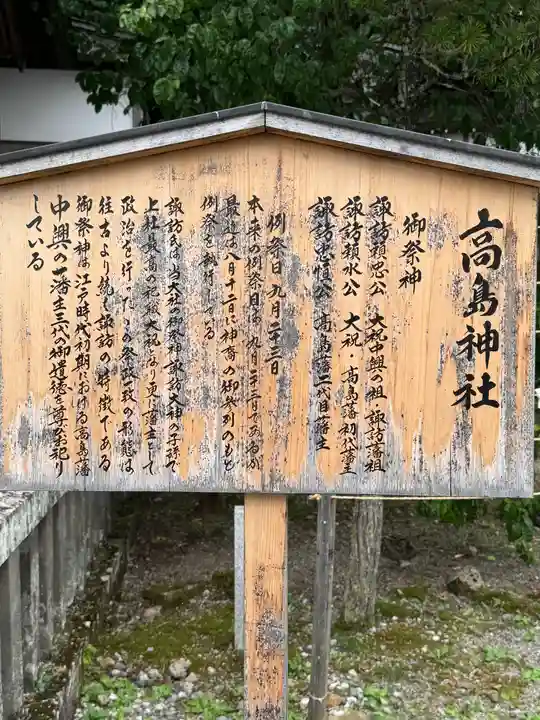 高島神社
御祭神
諏訪頼忠公　大祝中興の祖・諏訪藩祖
諏訪頼水公　大祝・高島藩初代藩主
諏訪忠恒公　高島藩二代目藩主
例祭日　九月二十三日
本来の例祭日は、九月二十三日であるが
最近は八月十二日に神裔の御参列のもと
例祭を執行している
諏訪氏は、当大社の御祭神諏訪大神の子孫で
上社最高の祀職大祝となり更に藩主として
政治を行った　この祭政一致の形態は
往古より続く諏訪の特徴である
御祭神は江戸時代初期における高島藩
中興の藩主三代の御遺徳を尊びお祀り
している